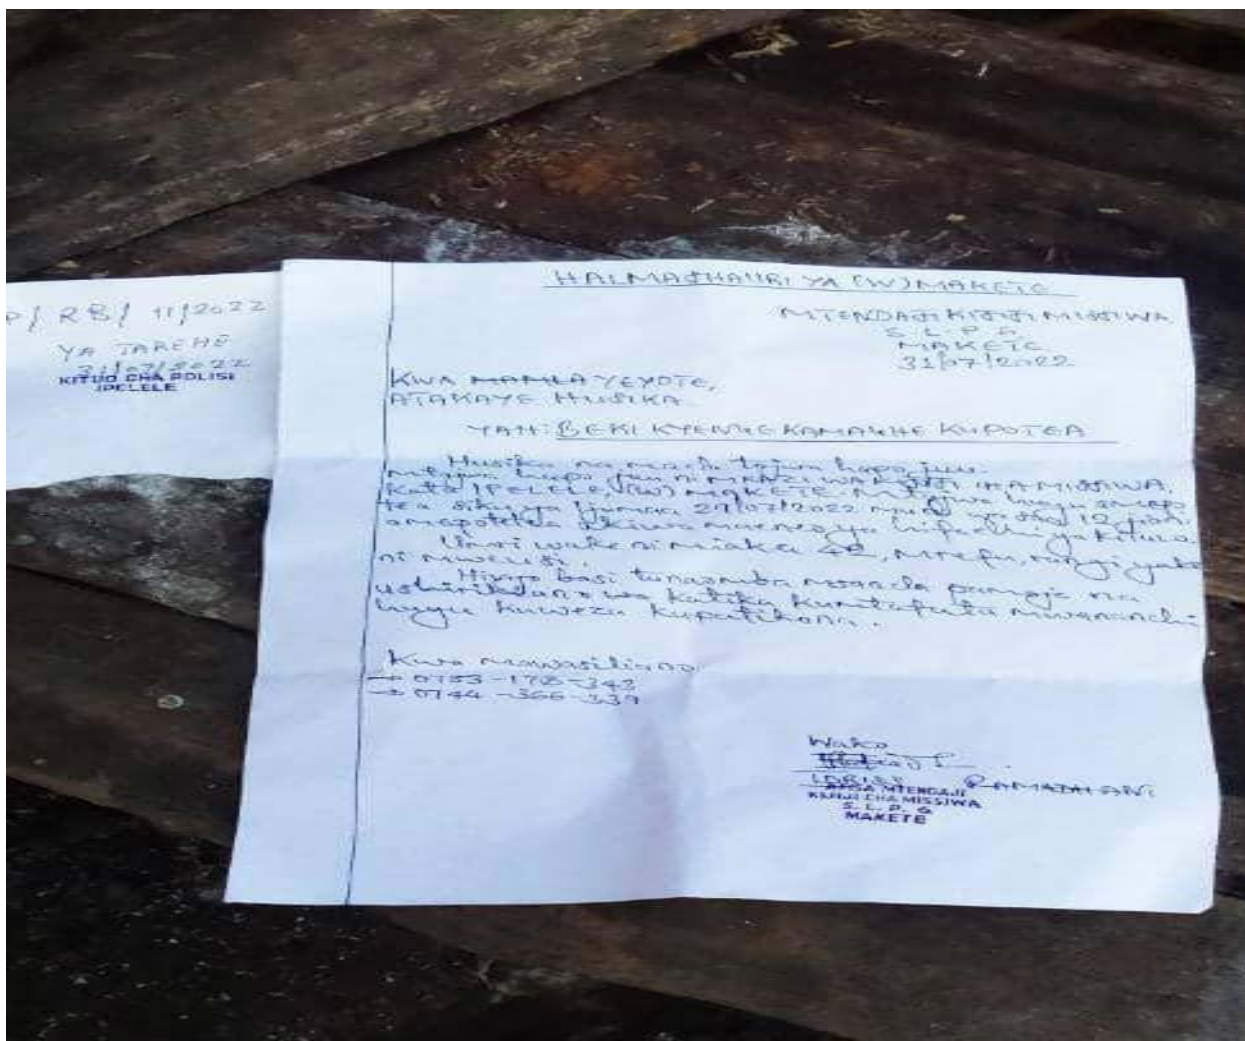 P/ RB/ 11/2022
YA TAREHE
31/07/2022
KITUO CHA POLISI
IPELELE
HALMASHAURI YA (W) MAKETE
MTENDAJI KIJIJI MISSIWA
S L P 6
MAKETE
31/07/2022
KWA MAMLA YEYOTE,
ATAKAYE HUSIKA
YAH: BEKI KYENJE KAMAGHE KUPOTEA
Husika na mada tajwa hapo juu.
Mtajwa hapo juu ni MKAZI WA KIJIJI CHA MISSIWA,
Kata IPELELE, (W) MAKETE. Mtajwa huyu
tea siku ya Ijumaa 29/07/2022 saa 12
amapotelea akiwa maeneo ya hifadhi ya Kitulo.
Umri wake ni miaka 42, Mrefu, rangi yake
ni mweusi.
Hivyo basi tunaomba msaada pamoja na
ushirikiano wa katika kumtafuta mwananchi
huyu kuweza kupatikana.
Kwa mawasiliano
→ 0753-178-343
→ 0744-366-339
Wako
IDRISI RAMADHANI
AFISA MTENDAJI
KIJIJI CHA MISSIWA
S. L. P. 6
MAKETE